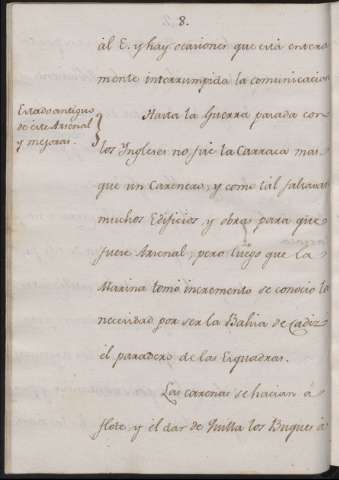 8.
al E. y hay ocasiones que está entera
mente interrumpida la comunicacion
Estado antiguo
de este Arsenal
y mejoras.
Hasta la Guerra pasada con
los Ingleses no fue la Carraca mas
que un Carenero, y como tál faltavan
muchos Edificios y obras para que
fuese Arsenal; pero luego que la
Marina tomó incremento se conoció la
necesidad por ser la Bahia de Cadiz
el paradero de las Esquadras.
Las carenas se hacian á
flote, y el dar de Quilla los Buques á